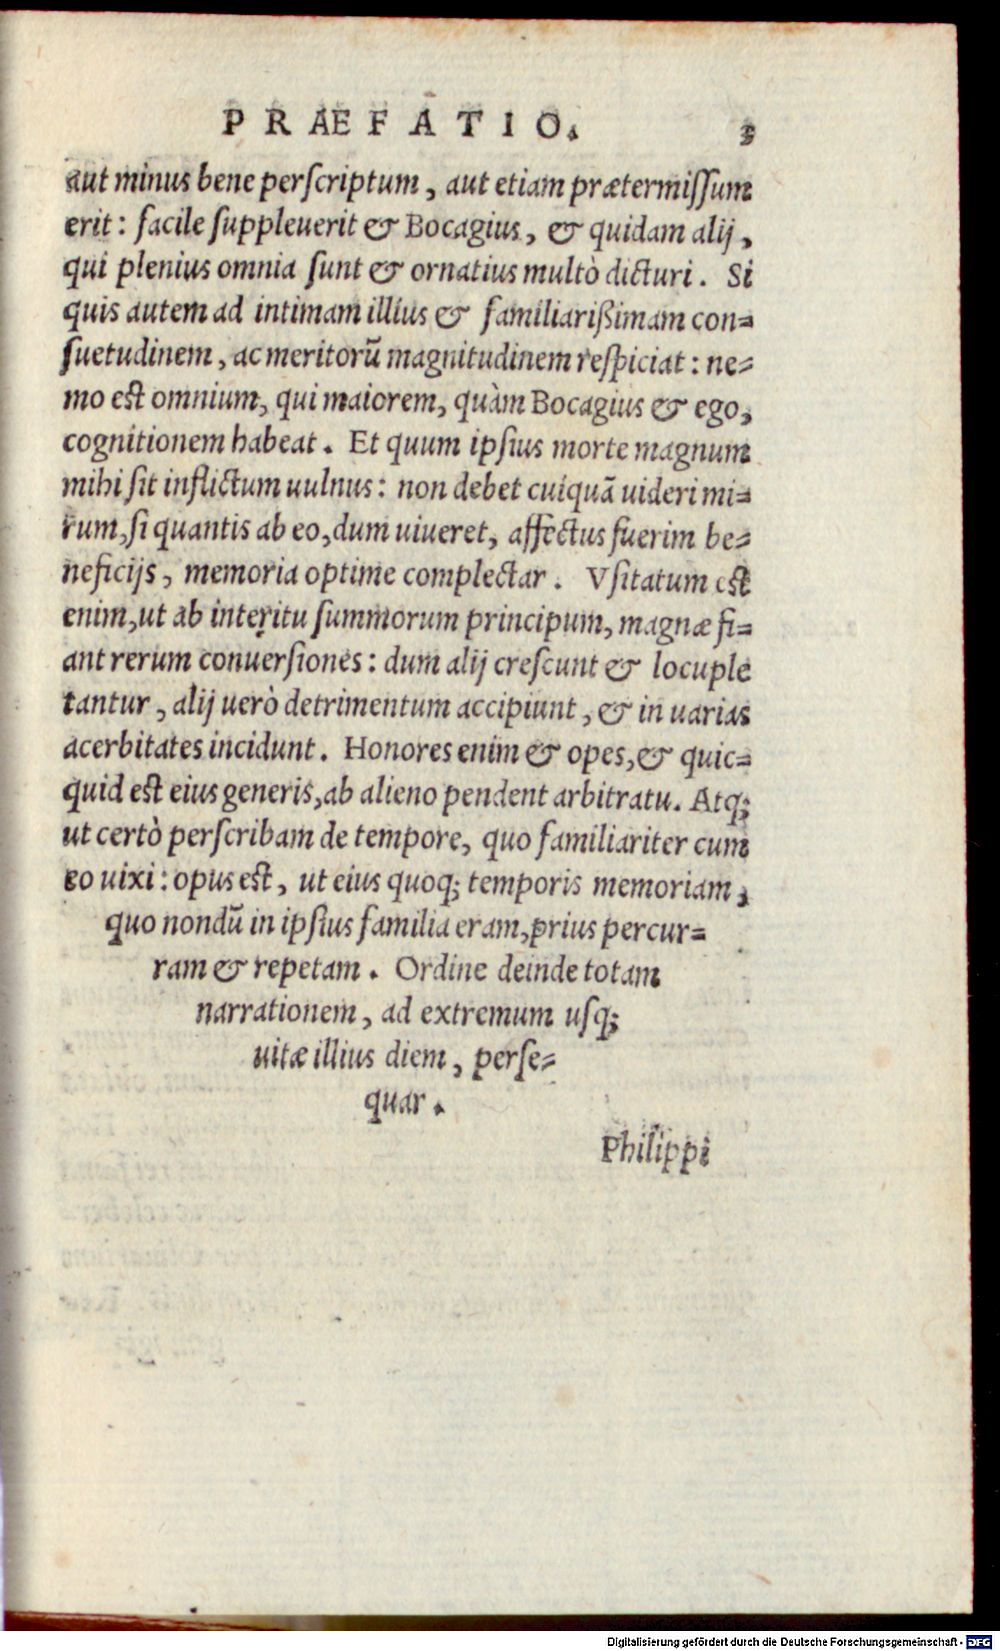 PRAEFATIO. 3
aut minus bene perſcriptum, aut etiam prætermiſſum
erit: facile ſuppleuerit & Bocagius, & quidam alij,
qui plenius omnia ſunt & ornatius multò dicturi. Si
quis autem ad intimam illius & familiarißimam con=
ſuetudinem, ac meritorū magnitudinem reſpiciat: ne=
mo est omnium, qui maiorem, quàm Bocagius & ego,
cognitionem habeat. Et quum ipſius morte magnum
mihi ſit inflictum uulnus: non debet cuiquā uideri mi=
rum, ſi quantis ab eo, dum uiueret, affectus fuerim be=
neficijs, memoria optime complectar. Vſitatum est
enim, ut ab interitu ſummorum principum, magnæ fi=
ant rerum conuerſiones: dum alij creſcunt & locuple
tantur, alij uerò detrimentum accipiunt, & in uarias
acerbitates incidunt. Honores enim & opes, & quic=
quid est eius generis, ab alieno pendent arbitratu. Atq;
ut certò perſcribam de tempore, quo familiariter cum
eo uixi: opus est, ut eius quoq; temporis memoriam,
quo nondū in ipſius familia eram, prius percur=
ram & repetam. Ordine deinde totam
narrationem, ad extremum uſq;
uitæ illius diem, perſe=
quar.
Philippi
Digitalisierung gefördert durch die Deutsche Forschungsgemeinschaft - DFG